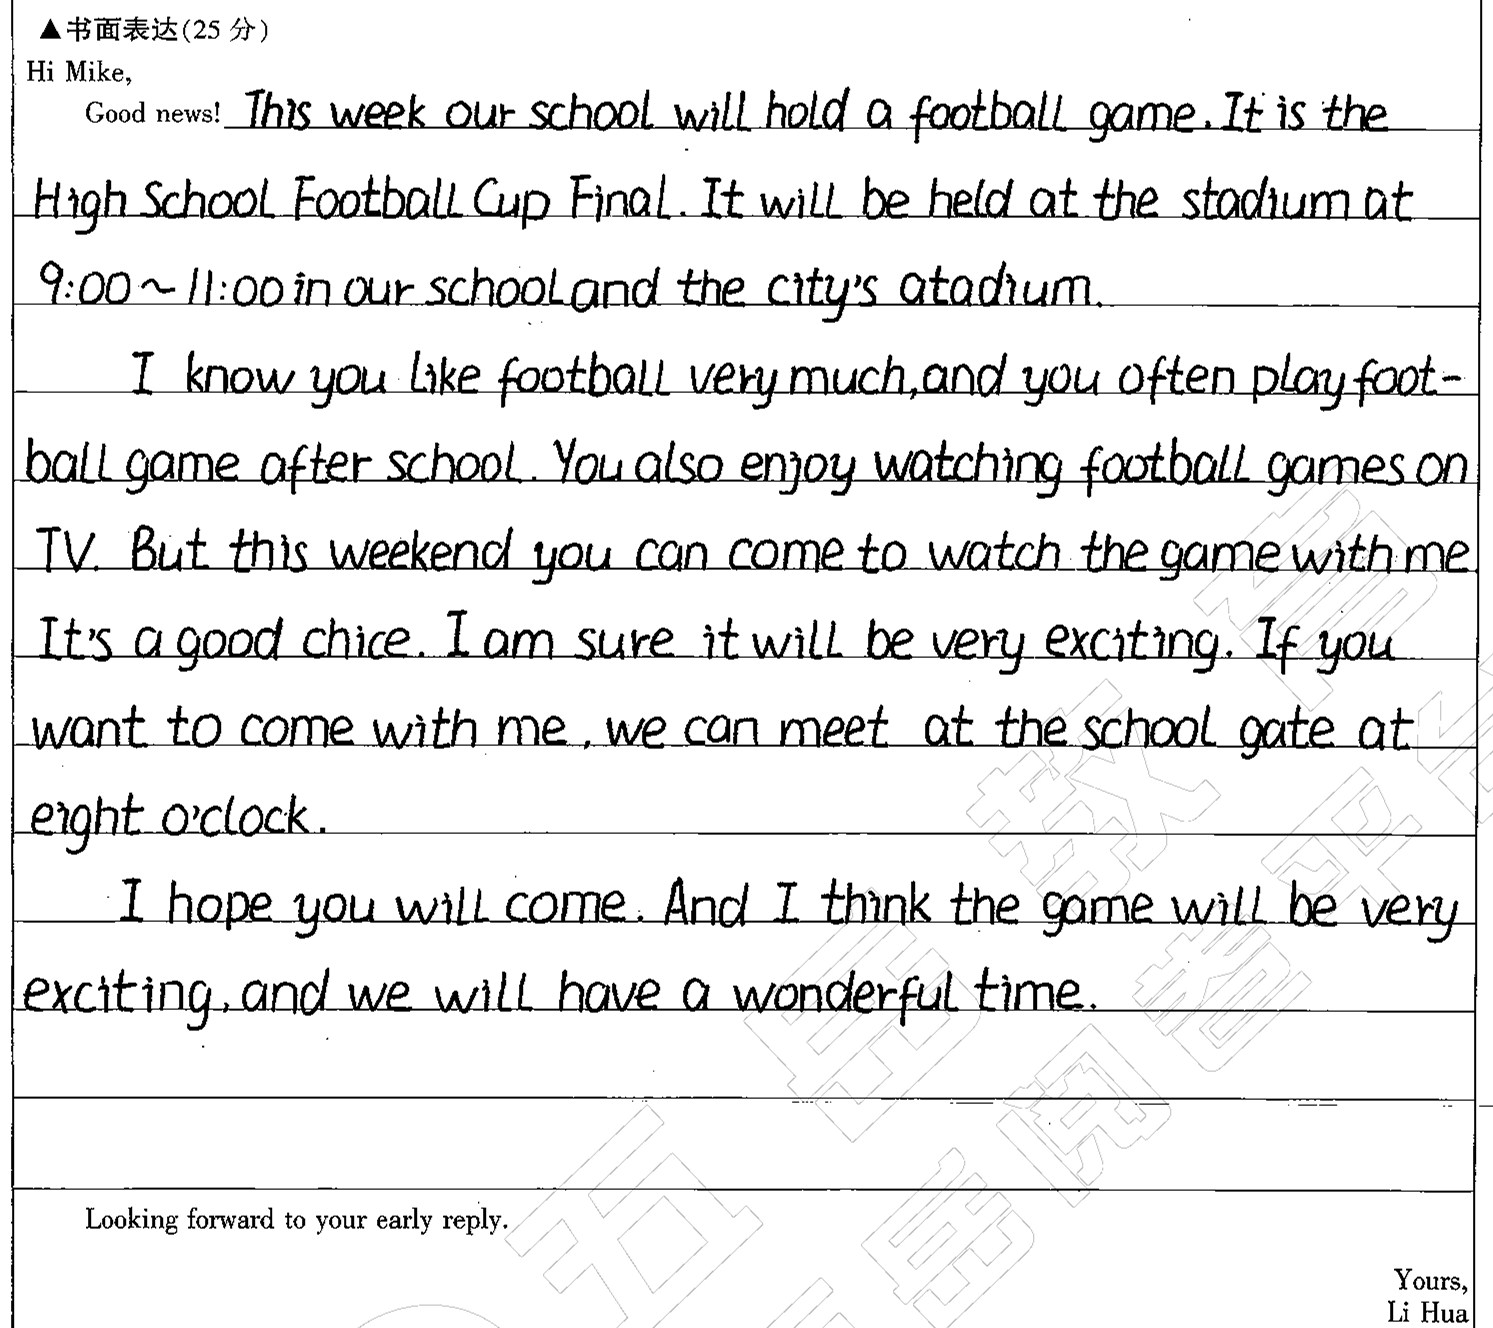 ▲书面表达(25 分)
Hi Mike,
Good news! This week our school will hold a football game. It is the
High School Football Cup Final. It will be held at the stadium at
9:00~11:00 in our school and the city's atadium.
I know you like football very much, and you often play foot-
ball game after school. You also enjoy watching football games on
TV. But this weekend you can come to watch the game with me
It's a good chice. I am sure it will be very exciting. If you
want to come with me, we can meet at the school gate at
eight o'clock.
I hope you will come. And I think the game will be very
exciting, and we will have a wonderful time.
Looking forward to your early reply.
Yours,
Li Hua